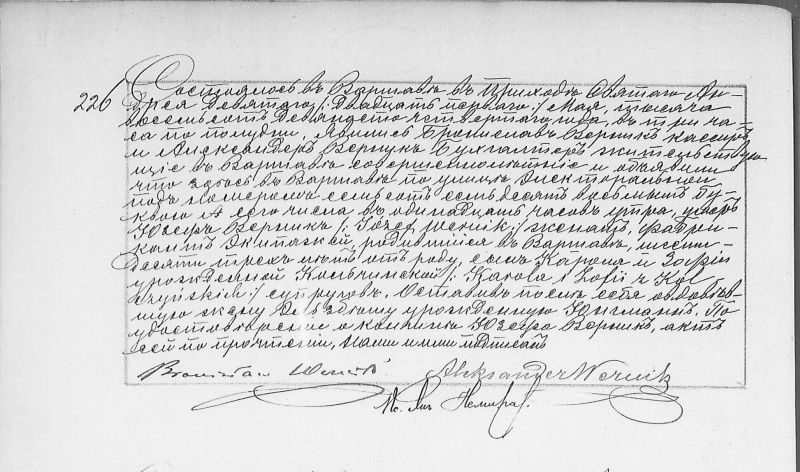 226
Состоялось въ Варшавѣ въ Приходѣ Святаго Ан-
дрея Девятаго /: Двадцать перваго :/ Мая, тысяча
восемьсотъ девяносто четвертаго года, въ три ча-
са по полудни. Явились Брониславъ Верникъ кассиръ
и Александеръ Верникъ Бухгалтеръ жительствую-
щіе въ Варшавѣ совершеннолѣтніе и объявили
что здѣсь въ Варшавѣ по улицѣ Электоральной
подъ номеромъ семьсотъ семьдесятъ восьмымъ бу-
квою А сего числа въ одинадцать часовъ утра, умеръ
Юзефъ Верникъ /: Józef Wernik :/ женатъ, фабри-
кантъ Экипажей, родившійся въ Варшавѣ, шесть-
десяти трехъ лѣтъ отъ роду, сынъ Кароля и Зофіи
урожденной Кильчинской /: Karola i Zofii z
:/ супруговъ. Оставивъ послѣ себя овдовѣв-
шую жену урожденную Юнгманъ. По
удостовѣреніи о кончинѣ Юзефа Верникъ, актъ
сей по прочтеніи, Нами и ими подписанъ
Bronisław Wernik Aleksander Wernik
Кс. Янъ Немира.